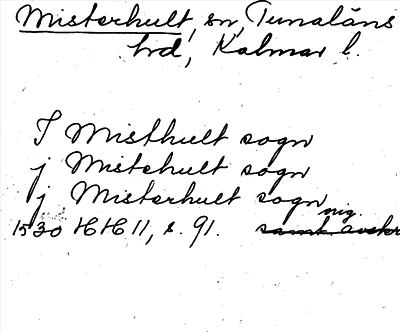 Misterhult, sn, Tunaläns
hd, Kalmar l.
I Misthult sogn
j Mistehult sogn
j Misterhult sogn
1530 HH 11, s. 91. samt avskr